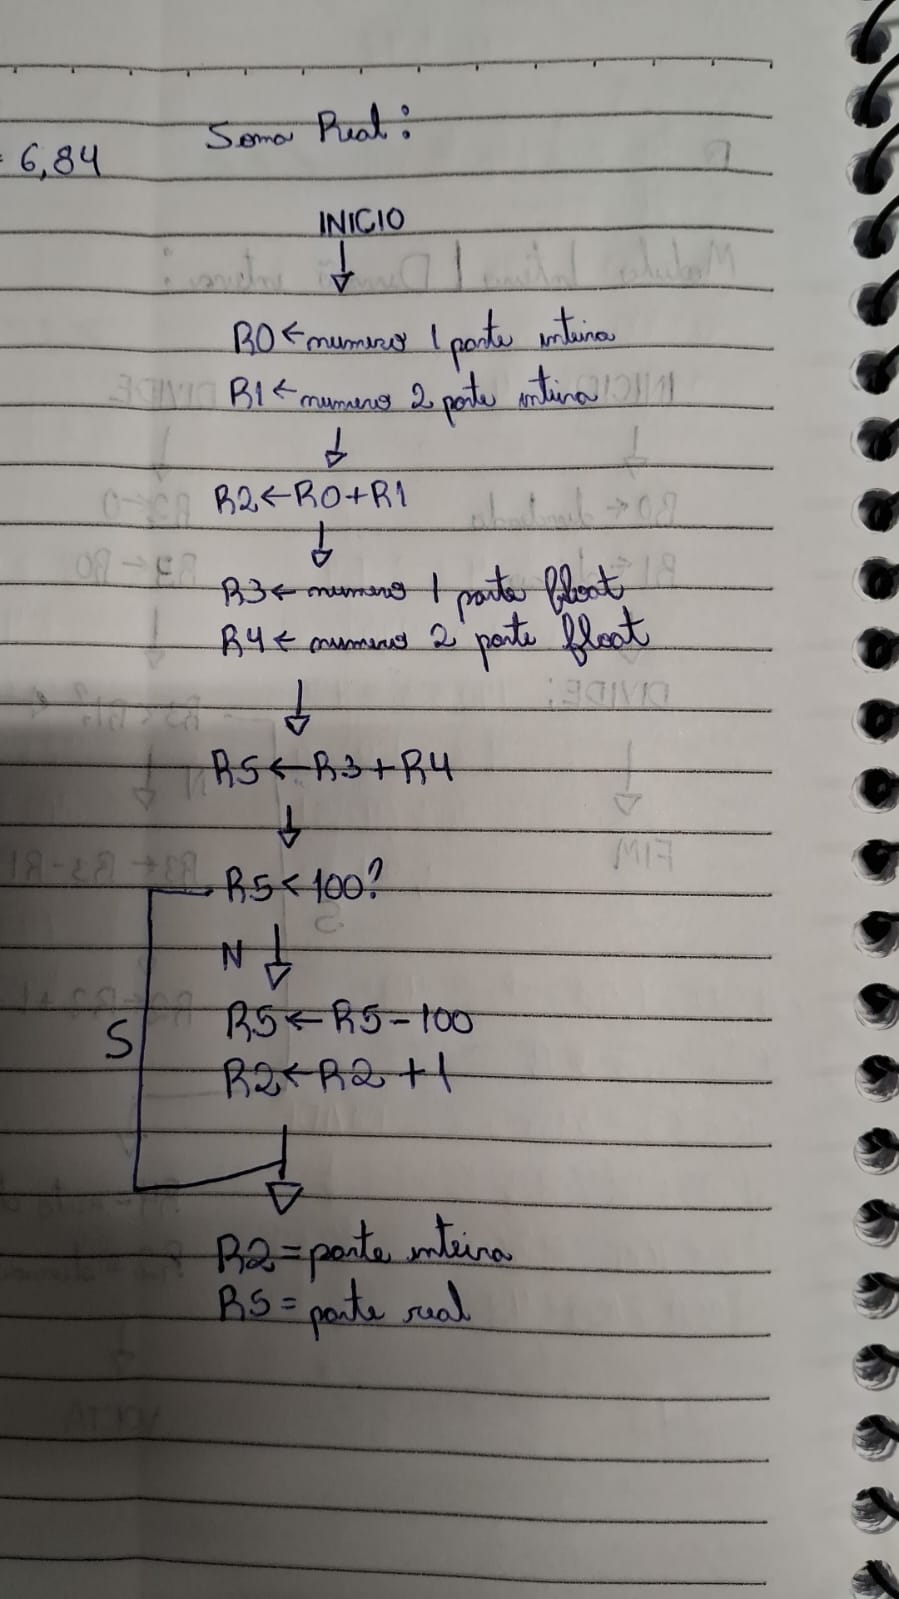 Soma Real:
= 6,84
INICIO
R0 ← numero 1 parte inteira
R1 ← numero 2 parte inteira
R2 ← R0 + R1
R3 ← numero 1 parte float
R4 ← numero 2 parte float
R5 ← R3 + R4
R5 < 100?
N
R5 ← R5 - 100
S
R2 ← R2 + 1
R2 = parte inteira
R5 = parte real